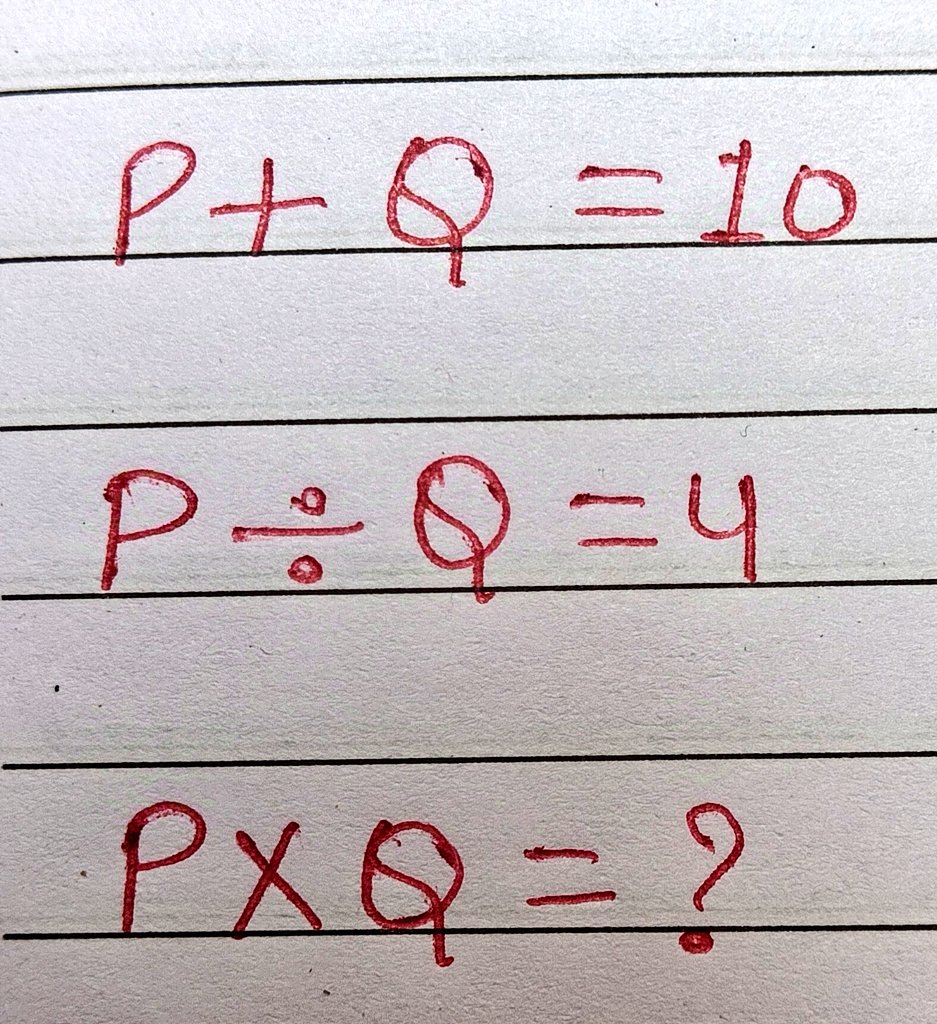 P + Q = 10
P ÷ Q = 4
P X Q = ?